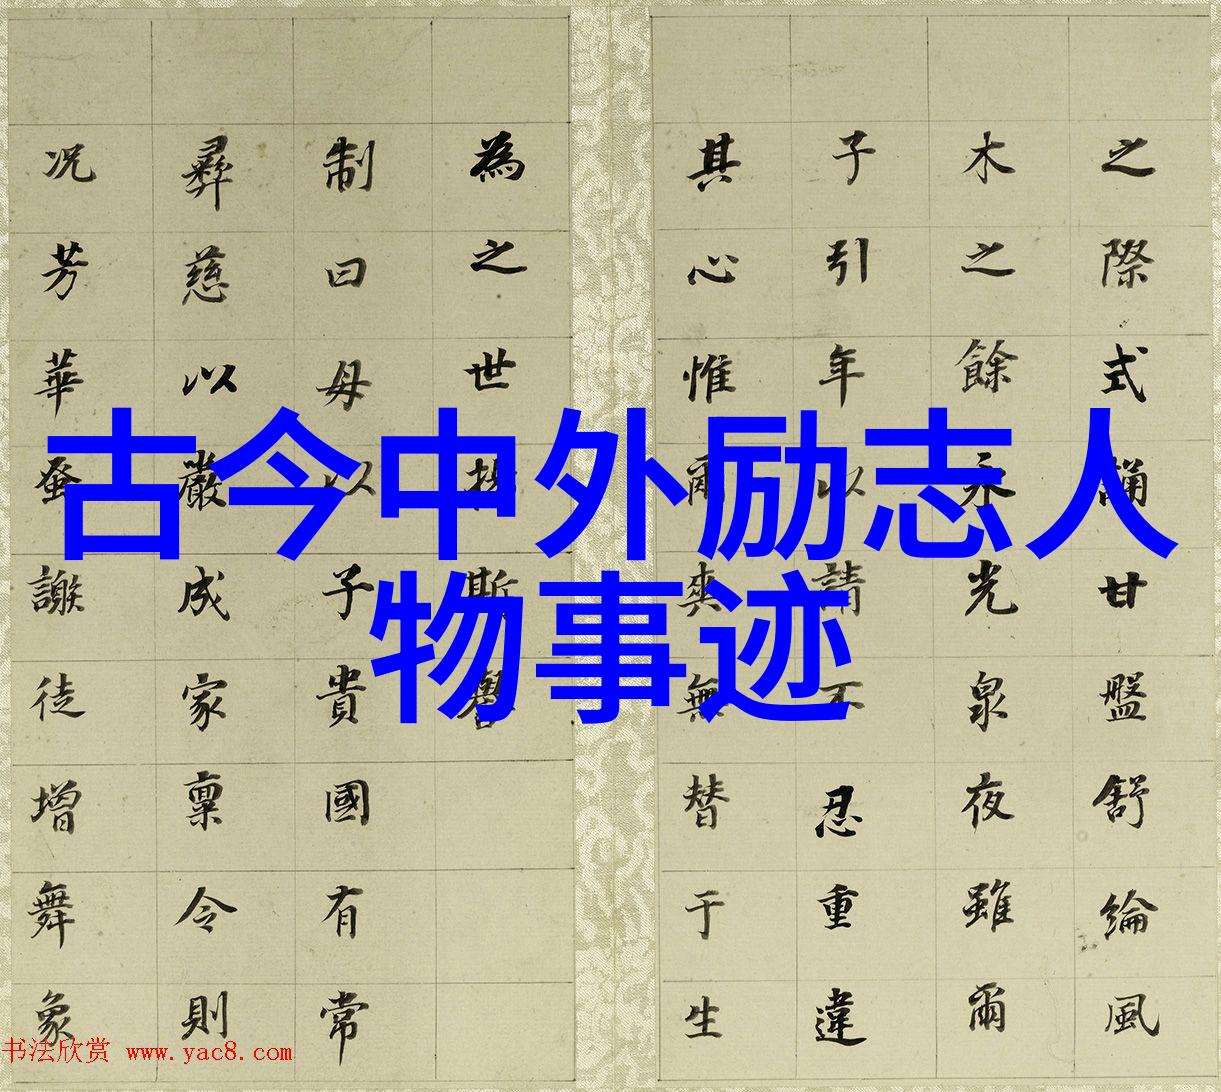 古今中外励志人
物事迹
之際式誦甘盤舒綸風
木之餘永光泉夜雖爾
子引年以請不忍重違
其心惟爾爽無替于生
為之世揚斯譽
制曰母以子貴國有常
彝慈以嚴成家稟令則
况芳華蚤謝徒增舞象
书法欣赏 www.yac8.com